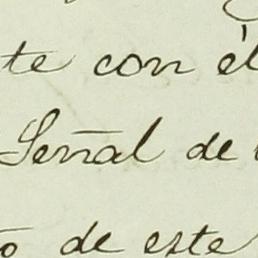 te con él
Señal de
o de este